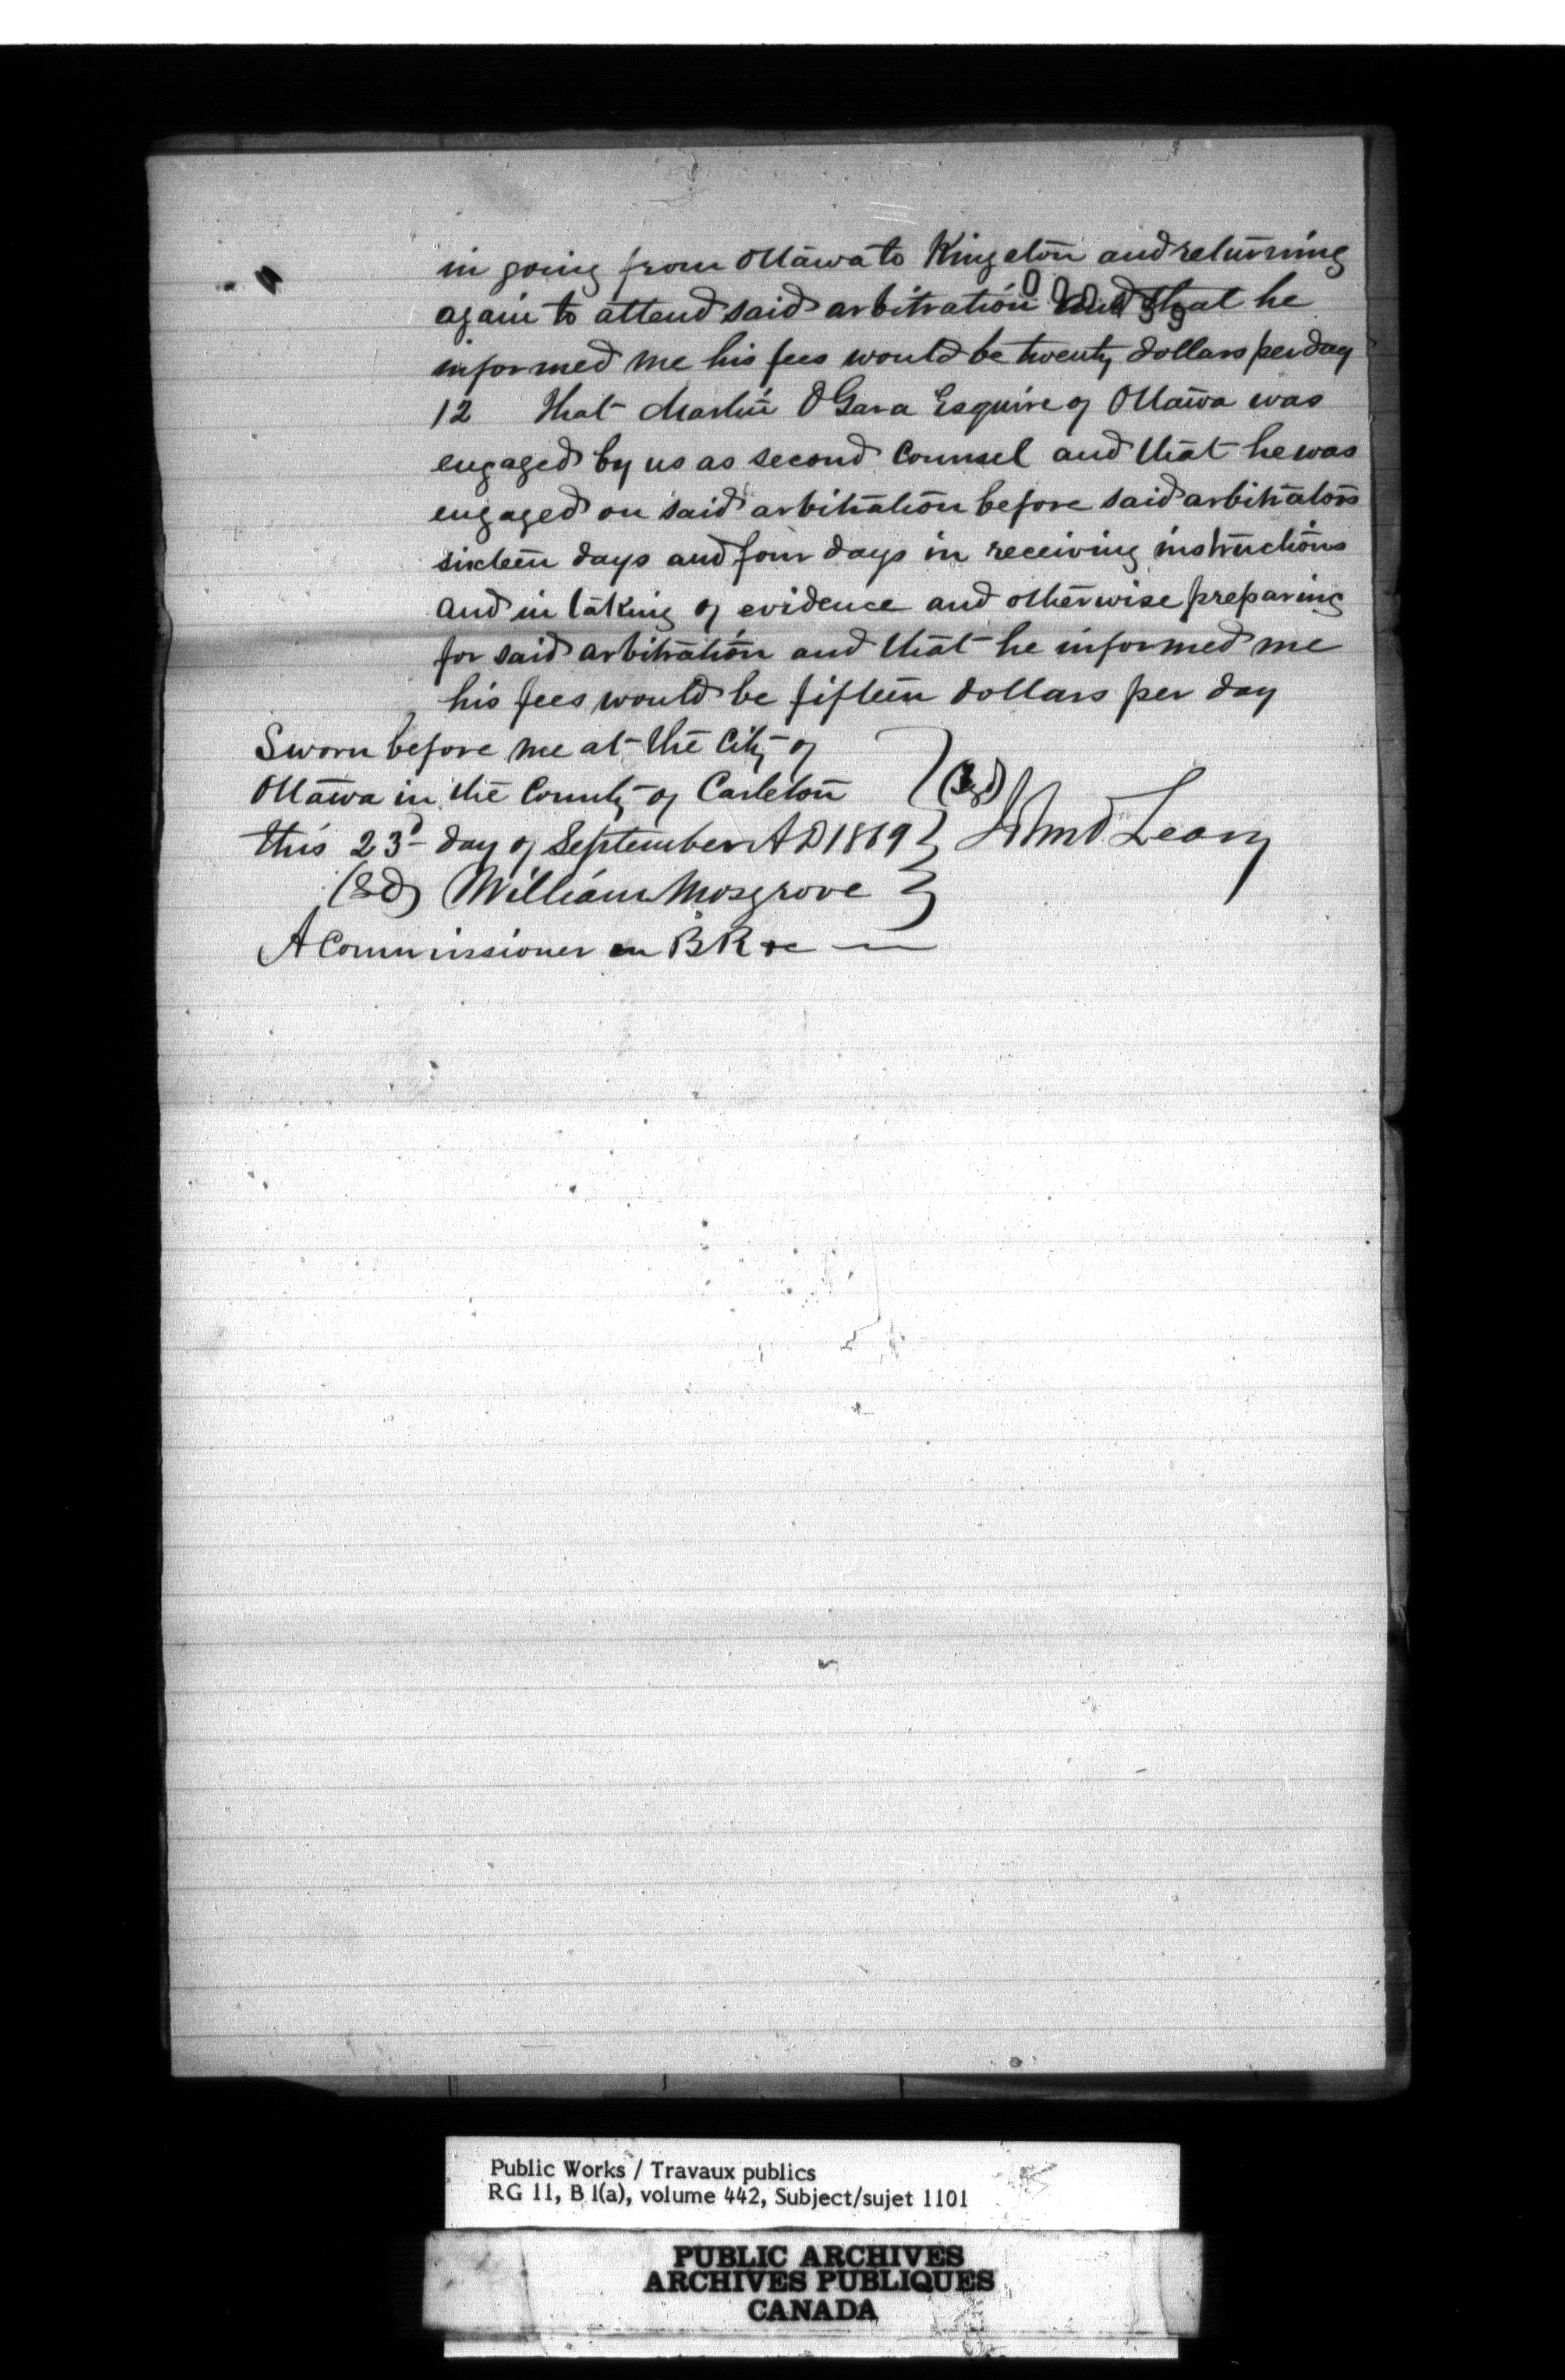 in going from Ottawa to Kingston and returning
again to attend said arbitration and that he
informed me his fees would be twenty dollars per day
12 That Martin O'Gara Esquire of Ottawa was
engaged by us as second Counsel and that he was
engaged on said arbitration before said arbitrators
sixteen days and four days in receiving instructions
and in taking of evidence and otherwise preparing
for said arbitration and that he informed me
his fees would be fifteen dollars per day
Sworn before me at the City of
Ottawa in the County of Carleton
this 23d day of September A D 1869
(Sgd)
Leary
(Sd) William Mosgrove
A Commissioner in B R &c
Public Works / Travaux publics
RG 11, B 1(a), volume 442, Subject/sujet 1101
PUBLIC ARCHIVES
ARCHIVES PUBLIQUES
CANADA